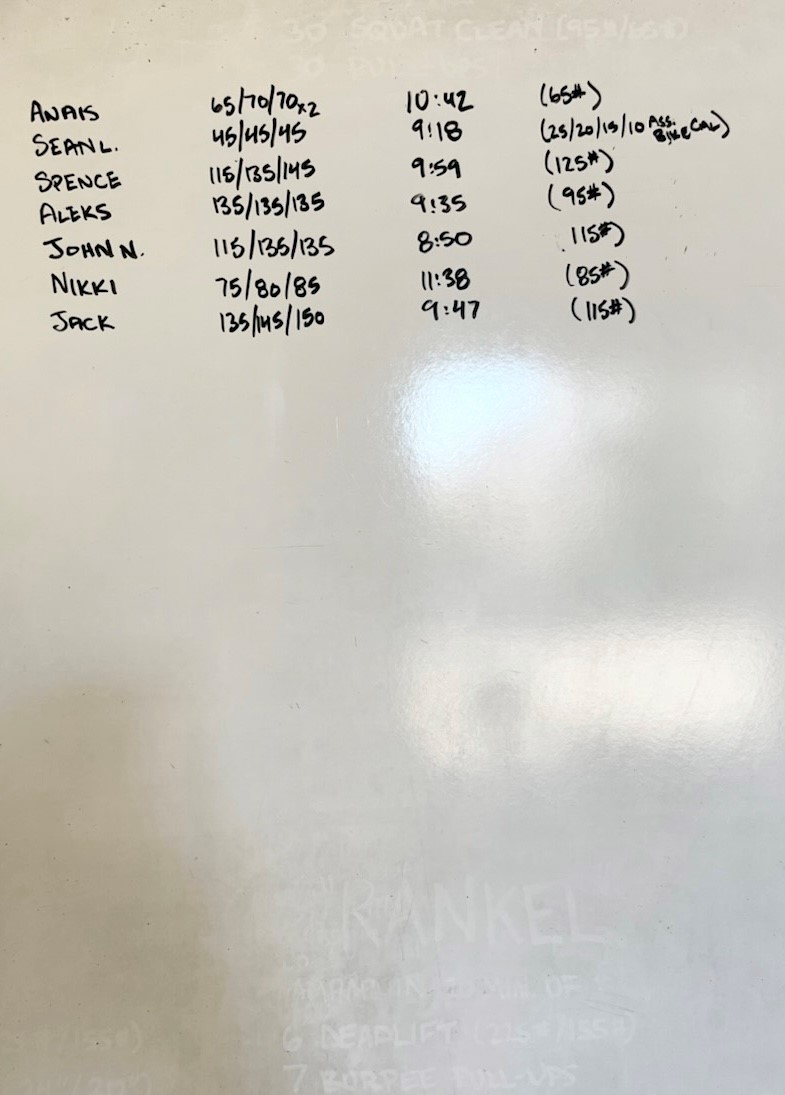 30 SQUAT CLEAN (95#/65#)
ANAIS 65/70/70x2 10:42 (65#)
SEAN L. 45/45/45 9:18 (25/20/15/10 ASS. BIKE CAL)
SPENCE 115/135/145 9:59 (125#)
ALEKS 135/135/135 9:35 (95#)
JOHN N. 115/135/135 8:50 115#)
NIKKI 75/80/85 11:38 (85#)
JACK 135/145/150 9:47 (115#)
"RANKEL
AMRAP IN 20 MIN. OF:
6 DEADLIFT (225#/155#)
7 BURPEE PULL-UPS